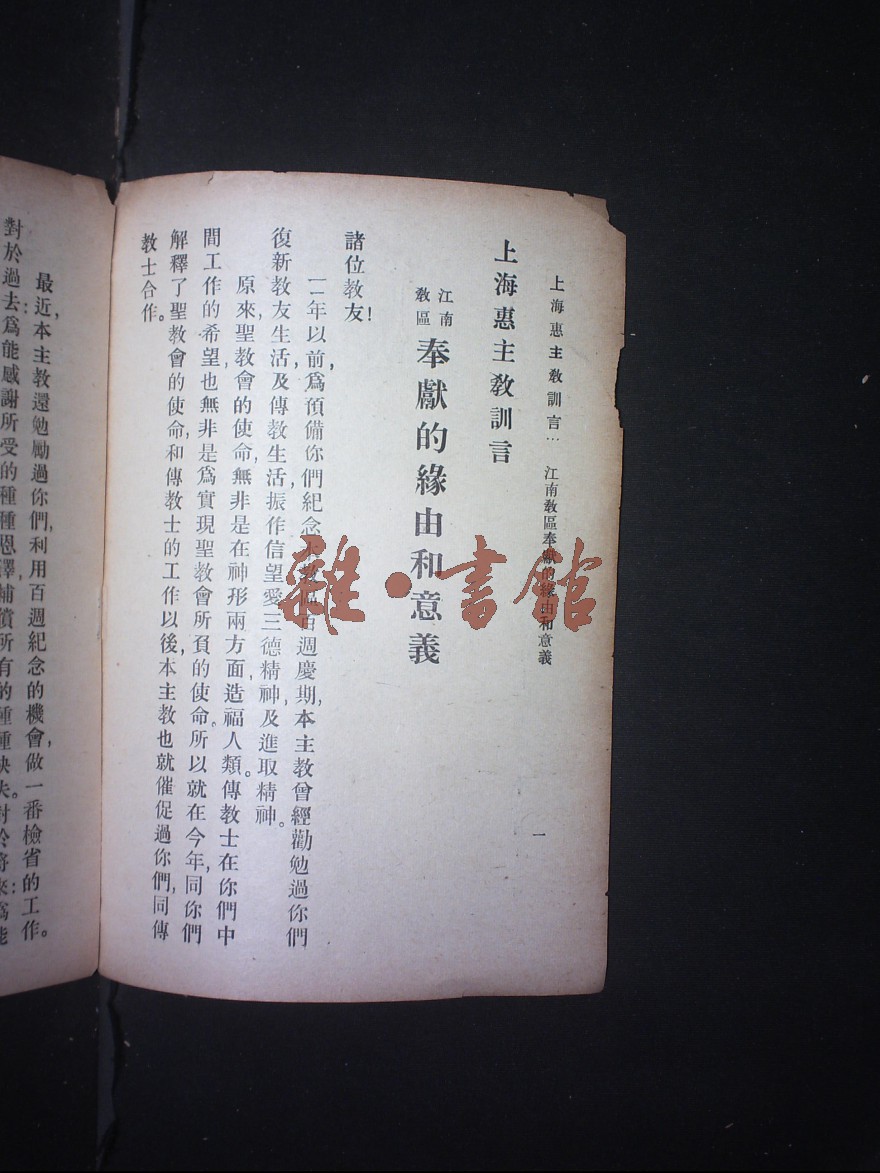 上海惠主敎訓言… 江南敎區奉獻的緣由和意義
一
上海惠主敎訓言
江南
敎區
奉獻的緣由和意義
諸位教友!
一二年以前,爲預備你們紀念本教區百週慶期,本主教曾經勸勉過你們
復新教友生活,及傳教生活,振作信望愛三德精神,及進取精神。
原來,聖教會的使命,無非是在神形兩方面,造福人類。傳教士在你們中
間工作的希望也無非是爲實現聖教會所負的使命。所以就在今年,同你們
解釋了聖教會的使命,和傳教士的工作以後,本主教也就催促過你們,同傳
教士合作。
最近,本主教還勉勵過你們,利用百週紀念的機會,做一番檢省的工作。
對於過去:爲能感謝所受的種種恩澤,補償所有的種種缺失。對於將來:爲能
雜·書館